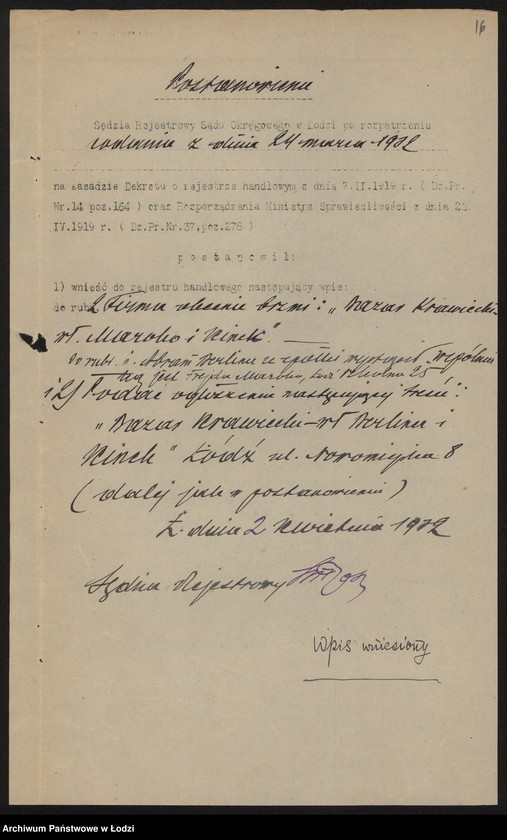 16
Postanowienie
Sędzia Rejestrowy Sądu Okręgowego w Łodzi po rozpatrzeniu
podania z dnia 24 marca 1932
na zasadzie Dekretu o rejestrze handlowym z dnia 7.II.1919 r. ( Dz.Pr.
Nr.14 poz.164 ) oraz Rozporządzenia Ministra Sprawiedliwości z dnia 22.
IV.1919 r. ( Dz.Pr.Nr.37,poz.276 )
p o s t a n o w i ł:
1) wnieść do rejestru handlowego następujący wpis:
do rubr. 2 Firma obecnie brzmi: „Bazar Krawiecki-
wł. Maroko i Kinek". —
do rubr. i. Abram Berliner z spółki wystąpił. Wspólni
kiem jest Maroko,
i 2) Podać ogłoszenie następującej treści:
„Bazar Krawiecki-wł Berliner i
Kinek" Łódź ul. Nowomiejska 8
( dalej jak w postanowieniu )
Ł. dnia 2 Kwietnia 1932
Sędzia Rejestrowy
Wpis wniesiony
Archiwum Państwowe w Łodzi